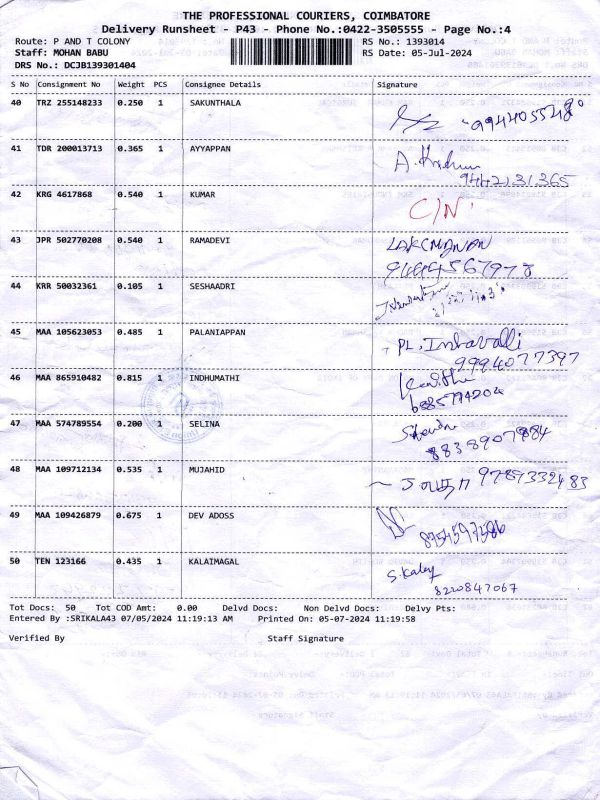 THE PROFESSIONAL COURIERS, COIMBATORE
Delivery Runsheet - P43 - Phone No.:0422-3505555 - Page No.:4
Route: P AND T COLONY RS No.: 1393014
Staff: MOHAN BABU RS Date: 05-Jul-2024
DRS No.: DCJB139301404
S No Consignment No Weight PCS Consignee Details Signature
40 TRZ 255148233 0.250 1 SAKUNTHALA
41 TDR 200013713 0.365 1 AYYAPPAN
9442131365
42 KRG 4617868 0.540 1 KUMAR
C/N
43 JPR 502770208 0.540 1 RAMADEVI LAKCMANAN
9444567978
44 KRR 50032361 0.105 1 SESHAADRI
45 MAA 105623053 0.485 1 PALANIAPPAN
PL. Inbavalli
9994077397
46 MAA 865910482 0.815 1 INDHUMATHI Kavitha
47 MAA 574789554 0.200 1 SELINA
8838907884
48 MAA 109712134 0.535 1 MUJAHID
9789332483
49 MAA 109426879 0.675 1 DEV ADOSS
8754597586
50 TEN 123166 0.435 1 KALAIMAGAL
S. Kaley
8220847067
Tot Docs: 50 Tot COD Amt: 0.00 Delvd Docs: Non Delvd Docs: Delvy Pts:
Entered By :SRIKALA43 07/05/2024 11:19:13 AM Printed On: 05-07-2024 11:19:58
Verified By Staff Signature